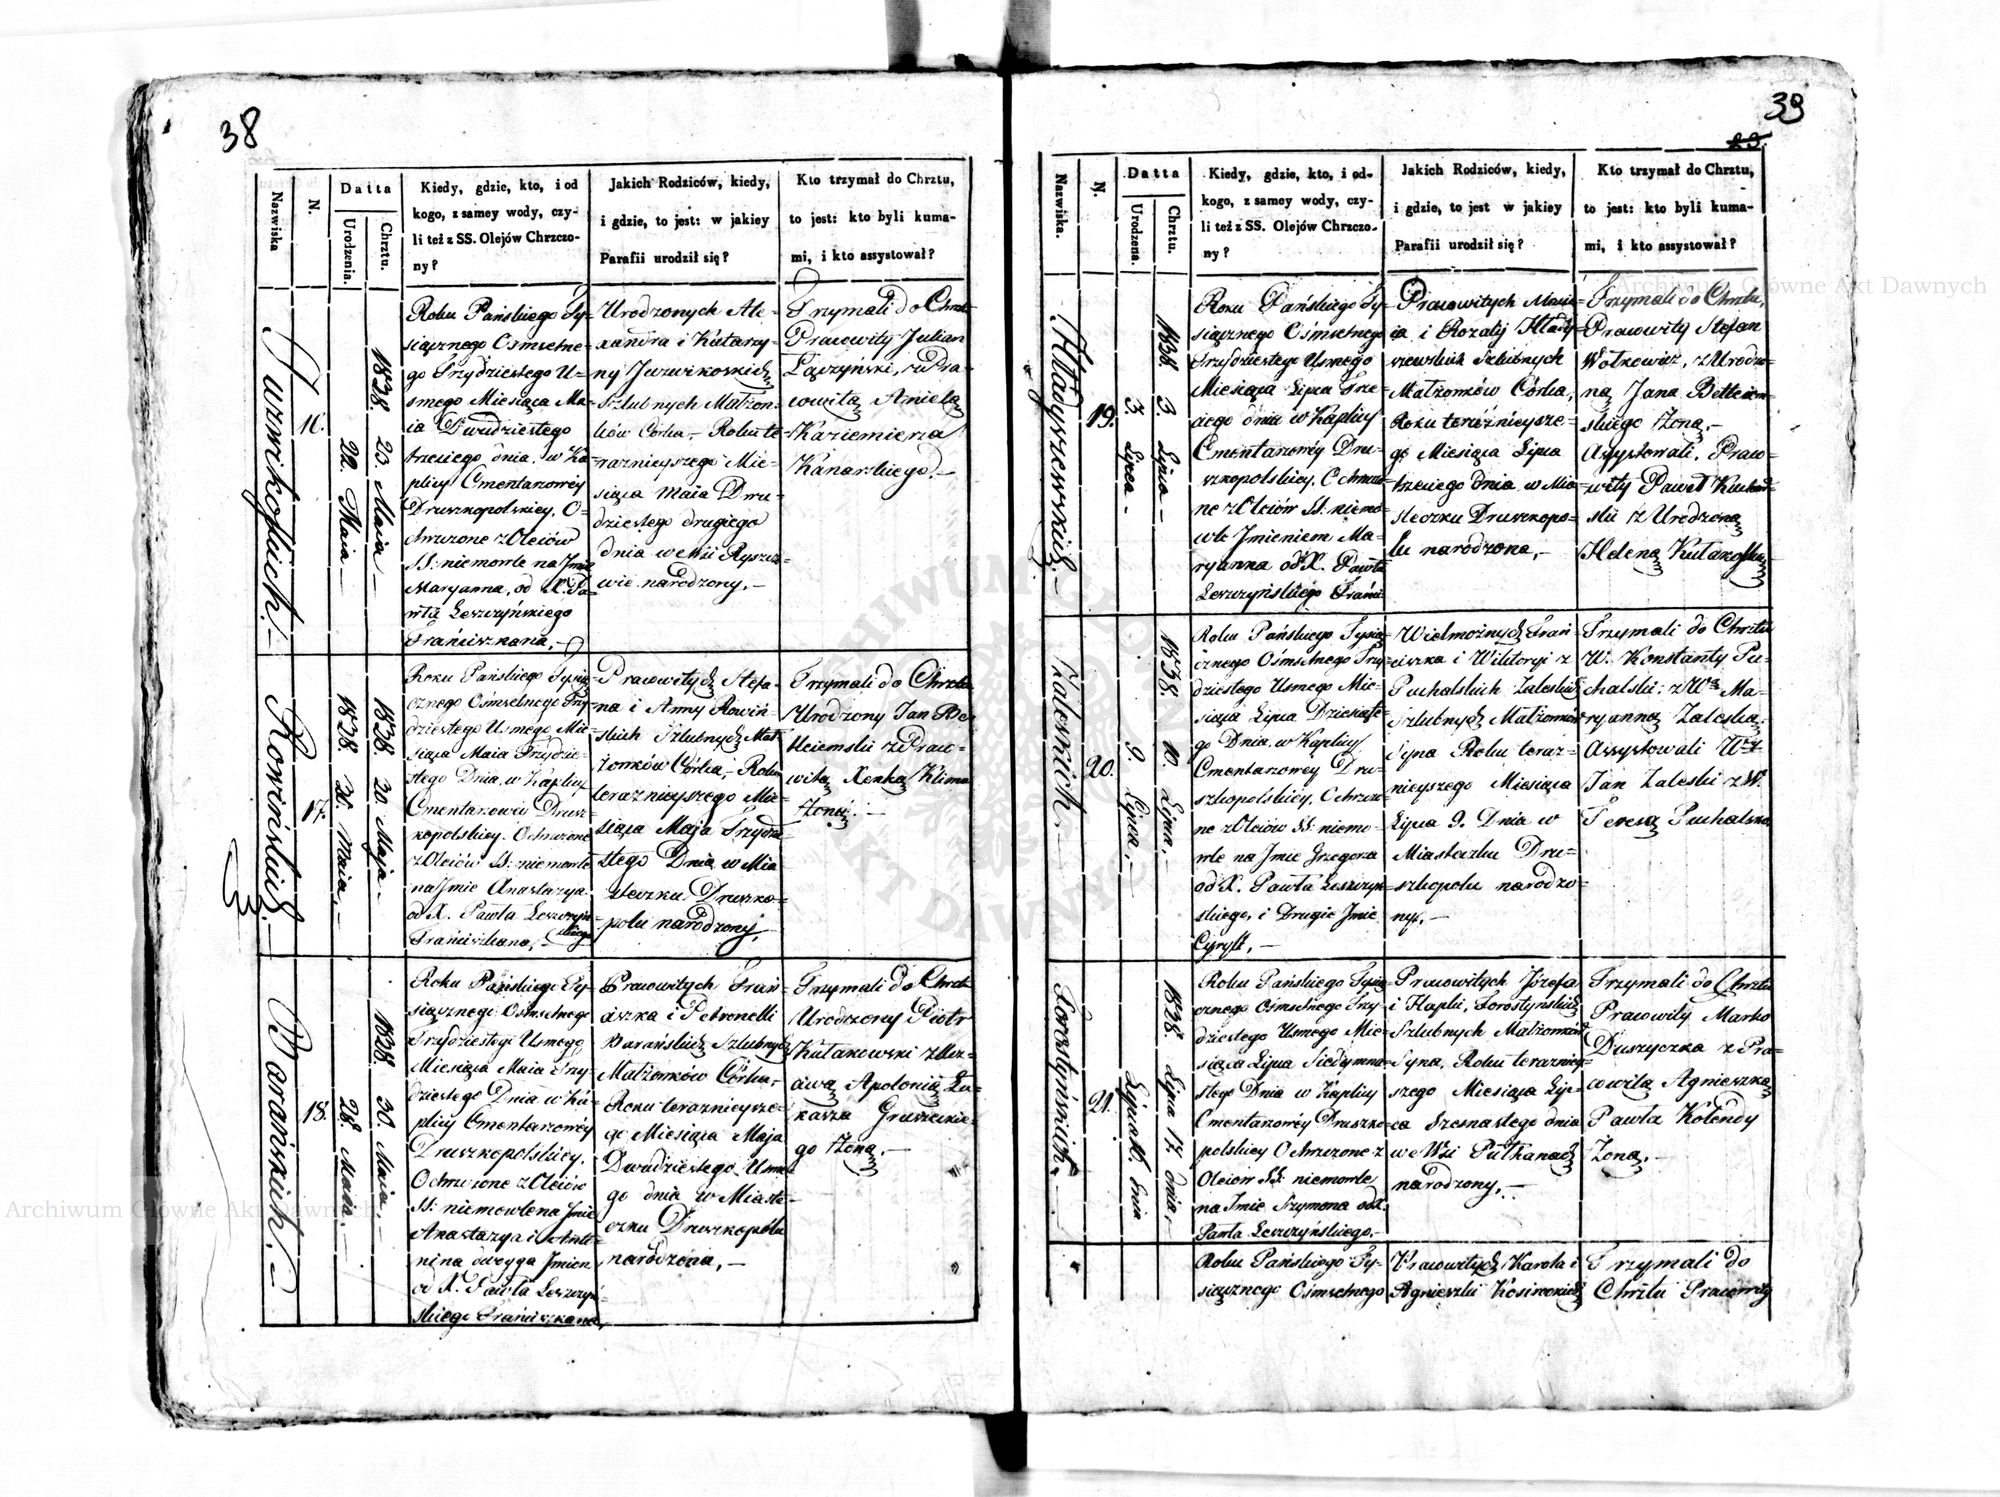 38
Nazwiska
N.
Datta
Urodzenia.
Chrztu.
Kiedy, gdzie, kto, i od
kogo, z samey wody, czy-
li też z SS. Olejów Chrzczo-
ny?
Jakich Rodziców, kiedy,
i gdzie, to jest: w jakiey
Parafii urodził się?
Kto trzymał do Chrztu,
to jest: kto byli kuma-
mi, i kto assystował?
16.
22. Maia
1838. 23. Maia
Roku Pańskiego Ty-
siącznego Ośmsetne-
go Trzydziestego U-
smego Miesiąca Ma-
ia Dwudziestego
trzeciego dnia w Ka-
plicy Cmentarzowey
Druszkopolskiey, O-
chrzczone z Oleiów
SS: niemowle na Jmie
Maryanna, od X. Pa-
wła Leszczyńskiego
Franciszkana,
Urodzonych Ale-
xandra i Katarzy-
ny
Szlubnych Małżon-
ków Córka, Roku te-
raznieyszego Mie-
siąca Maia Dwu-
dziestego drugiego
dnia we Wsii
narodzony,
Trzymali do Chrztu
Pracowity Julian
Łączyński, z Pra-
cowitą Anielą
Kazimierza
Kanarskiego.
Rowińskich.
17.
1838. 30. Maia,
1838. 30. Maja
Roku Pańskiego Tysią-
cznego Ośmsetnego Trzy-
dziestego Usmego Mie-
siąca Maia Trzydzie-
stego Dnia, w Kaplicy
Cmentarzowey Drusz-
kopolskiey. Ochrzczone
z Oleiów SS: niemowle
na Jmie Anastazya
od X. Pawła Leszczyń-
skiego
Franciszkana,
Pracowitych Stefa-
na i Anny Rowiń-
skich Szlubnych Mał-
żonków Córka, Roku
teraznieyszego Mie-
siąca Maja Trzydzie-
stego Dnia w Mia-
steczku Druszko-
polu narodzony,
Trzymali do Chrztu
Urodzony Jan Be-
z Praco-
witą Xenką Klima
Żoną.
Barańskich.
18.
28. Maia.
1838. 30. Maia,
Roku Pańskiego Ty-
siącznego Ośmsetnego
Trzydziestego Usmego
Miesiąca Maia Trzy-
dziestego Dnia w Ka-
plicy Cmentarzowey
Druszkopolskiey,
Ochrzczone z Oleiów
SS: niemowle na Jmie
Anastazya i Anto-
nina dwoyga Jmion
od X. Pawła Leszczyń-
skiego Franciszkana,
Pracowitych Fran-
ciszka i Petronelli
Barańskich Szlubnych
Małżonków Córka,
Roku teraznieysze-
go Miesiąca Maja
Dwudziestego Usme-
go dnia w Miaste-
czku Druszkopolu
narodzona,
Trzymali do Chrztu
Urodzony Piotr
Kułakowski z
Apolonią Łu-
kasza
go Żoną,
39
23.
Nazwiska.
N.
Datta
Urodzenia.
Chrztu.
Kiedy, gdzie, kto, i od-
kogo, z samey wody, czy-
li też z SS. Olejów Chrzczo-
ny?
Jakich Rodziców, kiedy,
i gdzie, to jest w jakiey
Parafii urodził się?
Kto trzymał do Chrztu,
to jest: kto byli kuma-
mi, i kto assystował?
Hładyszewskich.
19.
3. Lipca
1838. 3. Lipca
Roku Pańskiego Ty-
siącznego Ośmsetnego
Trzydziestego Usmego
Miesiąca Lipca Trze-
ciego dnia w Kaplicy
Cmentarzowey Dru-
szkopolskiey, Ochrzczo-
ne z Oleiów SS. niemo-
wle Jmieniem Ma-
ryanna od X. Pawła
Leszczyńskiego Franci
Pracowitych
i Rozalij Hłady-
szewskich Szlubnych
Małżonków Córka,
Roku teraźnieysze-
go Miesiąca Lipca
trzeciego dnia w Mia-
steczku Druszkopo-
lu narodzona,
Trzymali do Chrztu,
Pracowity Stefan
Wołkowicz, z Urodzo-
ną Jana
skiego Żoną,
Assystowali, Praco-
wity Paweł
z Urodzoną
Heleną Kułakoską
Zaleskich.
20.
9. Lipca,
1838. 10. Lipca,
Roku Pańskiego Tysią-
cznego Ośmsetnego Trzy-
dziestego Usmego Mie-
siąca Lipca Dziesiąte-
go Dnia, w Kaplicy
Cmentarzowey Dru-
szkopolskiey, Ochrzczo-
ne z Oleiów SS. niemo-
wle na Jmie Grzegorza
od X. Pawła Leszczyń-
skiego, i Drugie Jmie
Cyryll,
Wielmożnych Fran-
ciszka i Wiktoryi z
Puchalskich Zaleskich
Szlubnych Małżonków
Syna Roku teraz-
nieyszego Miesiąca
Lipca 9. Dnia w
Miasteczku Dru-
szkopolu narodzo-
ny,
Trzymali do Chrztu
W. Konstanty Pu-
chalski, z Wą Ma-
ryanną Zaleską,
Assystowali
Jan Zaleski z W.
Teresą Puchalską
Forostyńskich.
21.
Lipca 16. dnia
1838. Lipca 17. dnia,
Roku Pańskiego Tysią-
cznego Ośmsetnego Trzy-
dziestego Usmego Mie-
siąca Lipca Siedymna-
stego Dnia w Kaplicy
Cmentarzowey Druszko-
polskiey Ochrzczone z
Oleiow SS. niemowle
na Jmie Szymona od X.
Pawła Leszczyńskiego,
Pracowitych Józefa
i Hapki, Forostyńskich
Szlubnych Małżonków
Syna, Roku terazniey-
szego Miesiąca Lip-
ca Szesnastego dnia
we Wsi Pułhanach
narodzony,
Trzymali do Chrztu
Pracowity Marko
Duszyczka z Pra-
cowitą Agnieszką
Pawła Kolendy
Żoną,
Roku Pańskiego Ty-
siącznego Ośmsetnego
Pracowitych Karola i
Agnieszki
Trzymali do
Chrztu Pracowity
Archiwum Główne Akt Dawnych
Archiwum Główne Akt Dawnych
ARCHIWUM GŁÓWNE AKT DAWNYCH